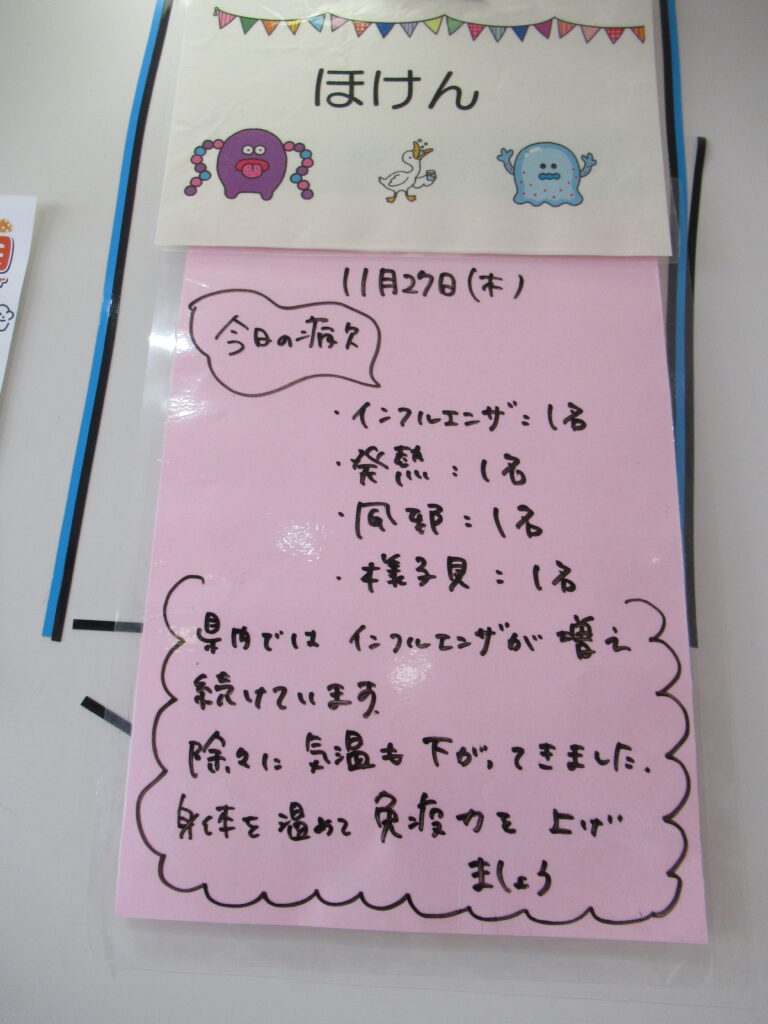 ほけん
11月27日(木)
今日の病欠
・インフルエンザ：1名
・発熱：1名
・風邪：1名
・様子見：1名
県内では インフルエンザが 増え
続けています。
除々に 気温も 下がってきました。
身体を 温めて 免疫力を 上げ
ましょう